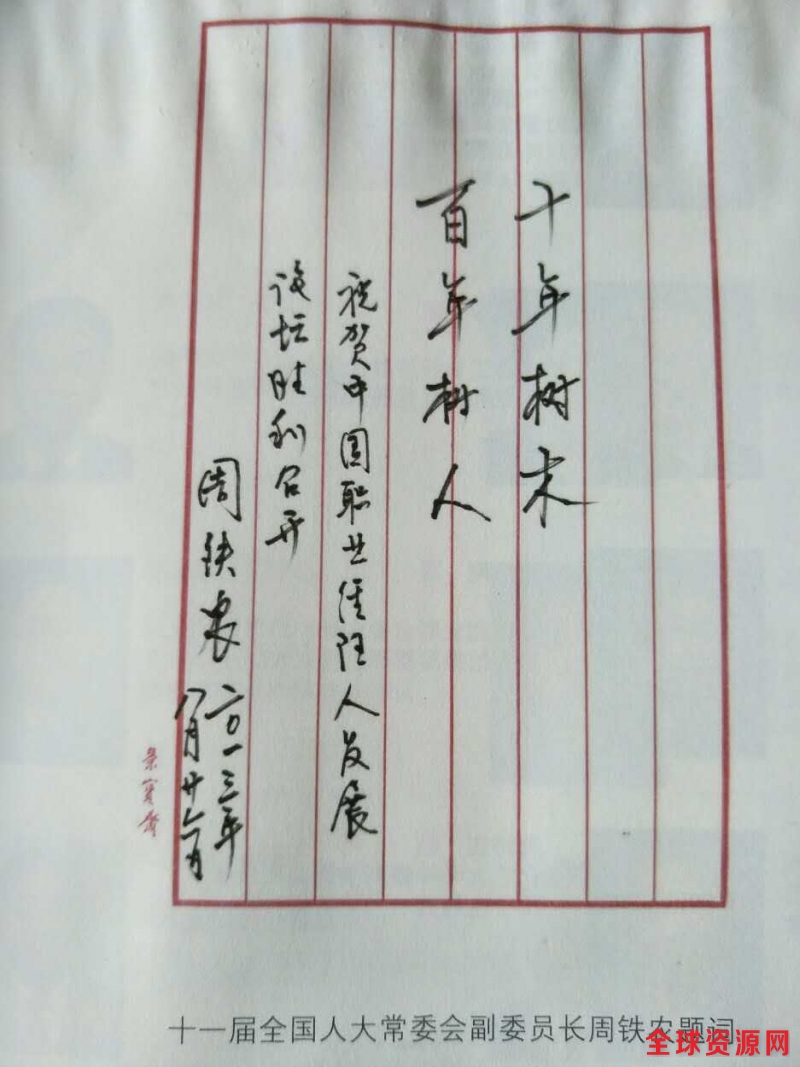 十年树木
百年树人
祝贺中国职业经理人发展
论坛胜利召开
周铁农
二〇一三年
八月廿六日
荣宝斋
十一届全国人大常委会副委员长周铁农题词
全球资源网